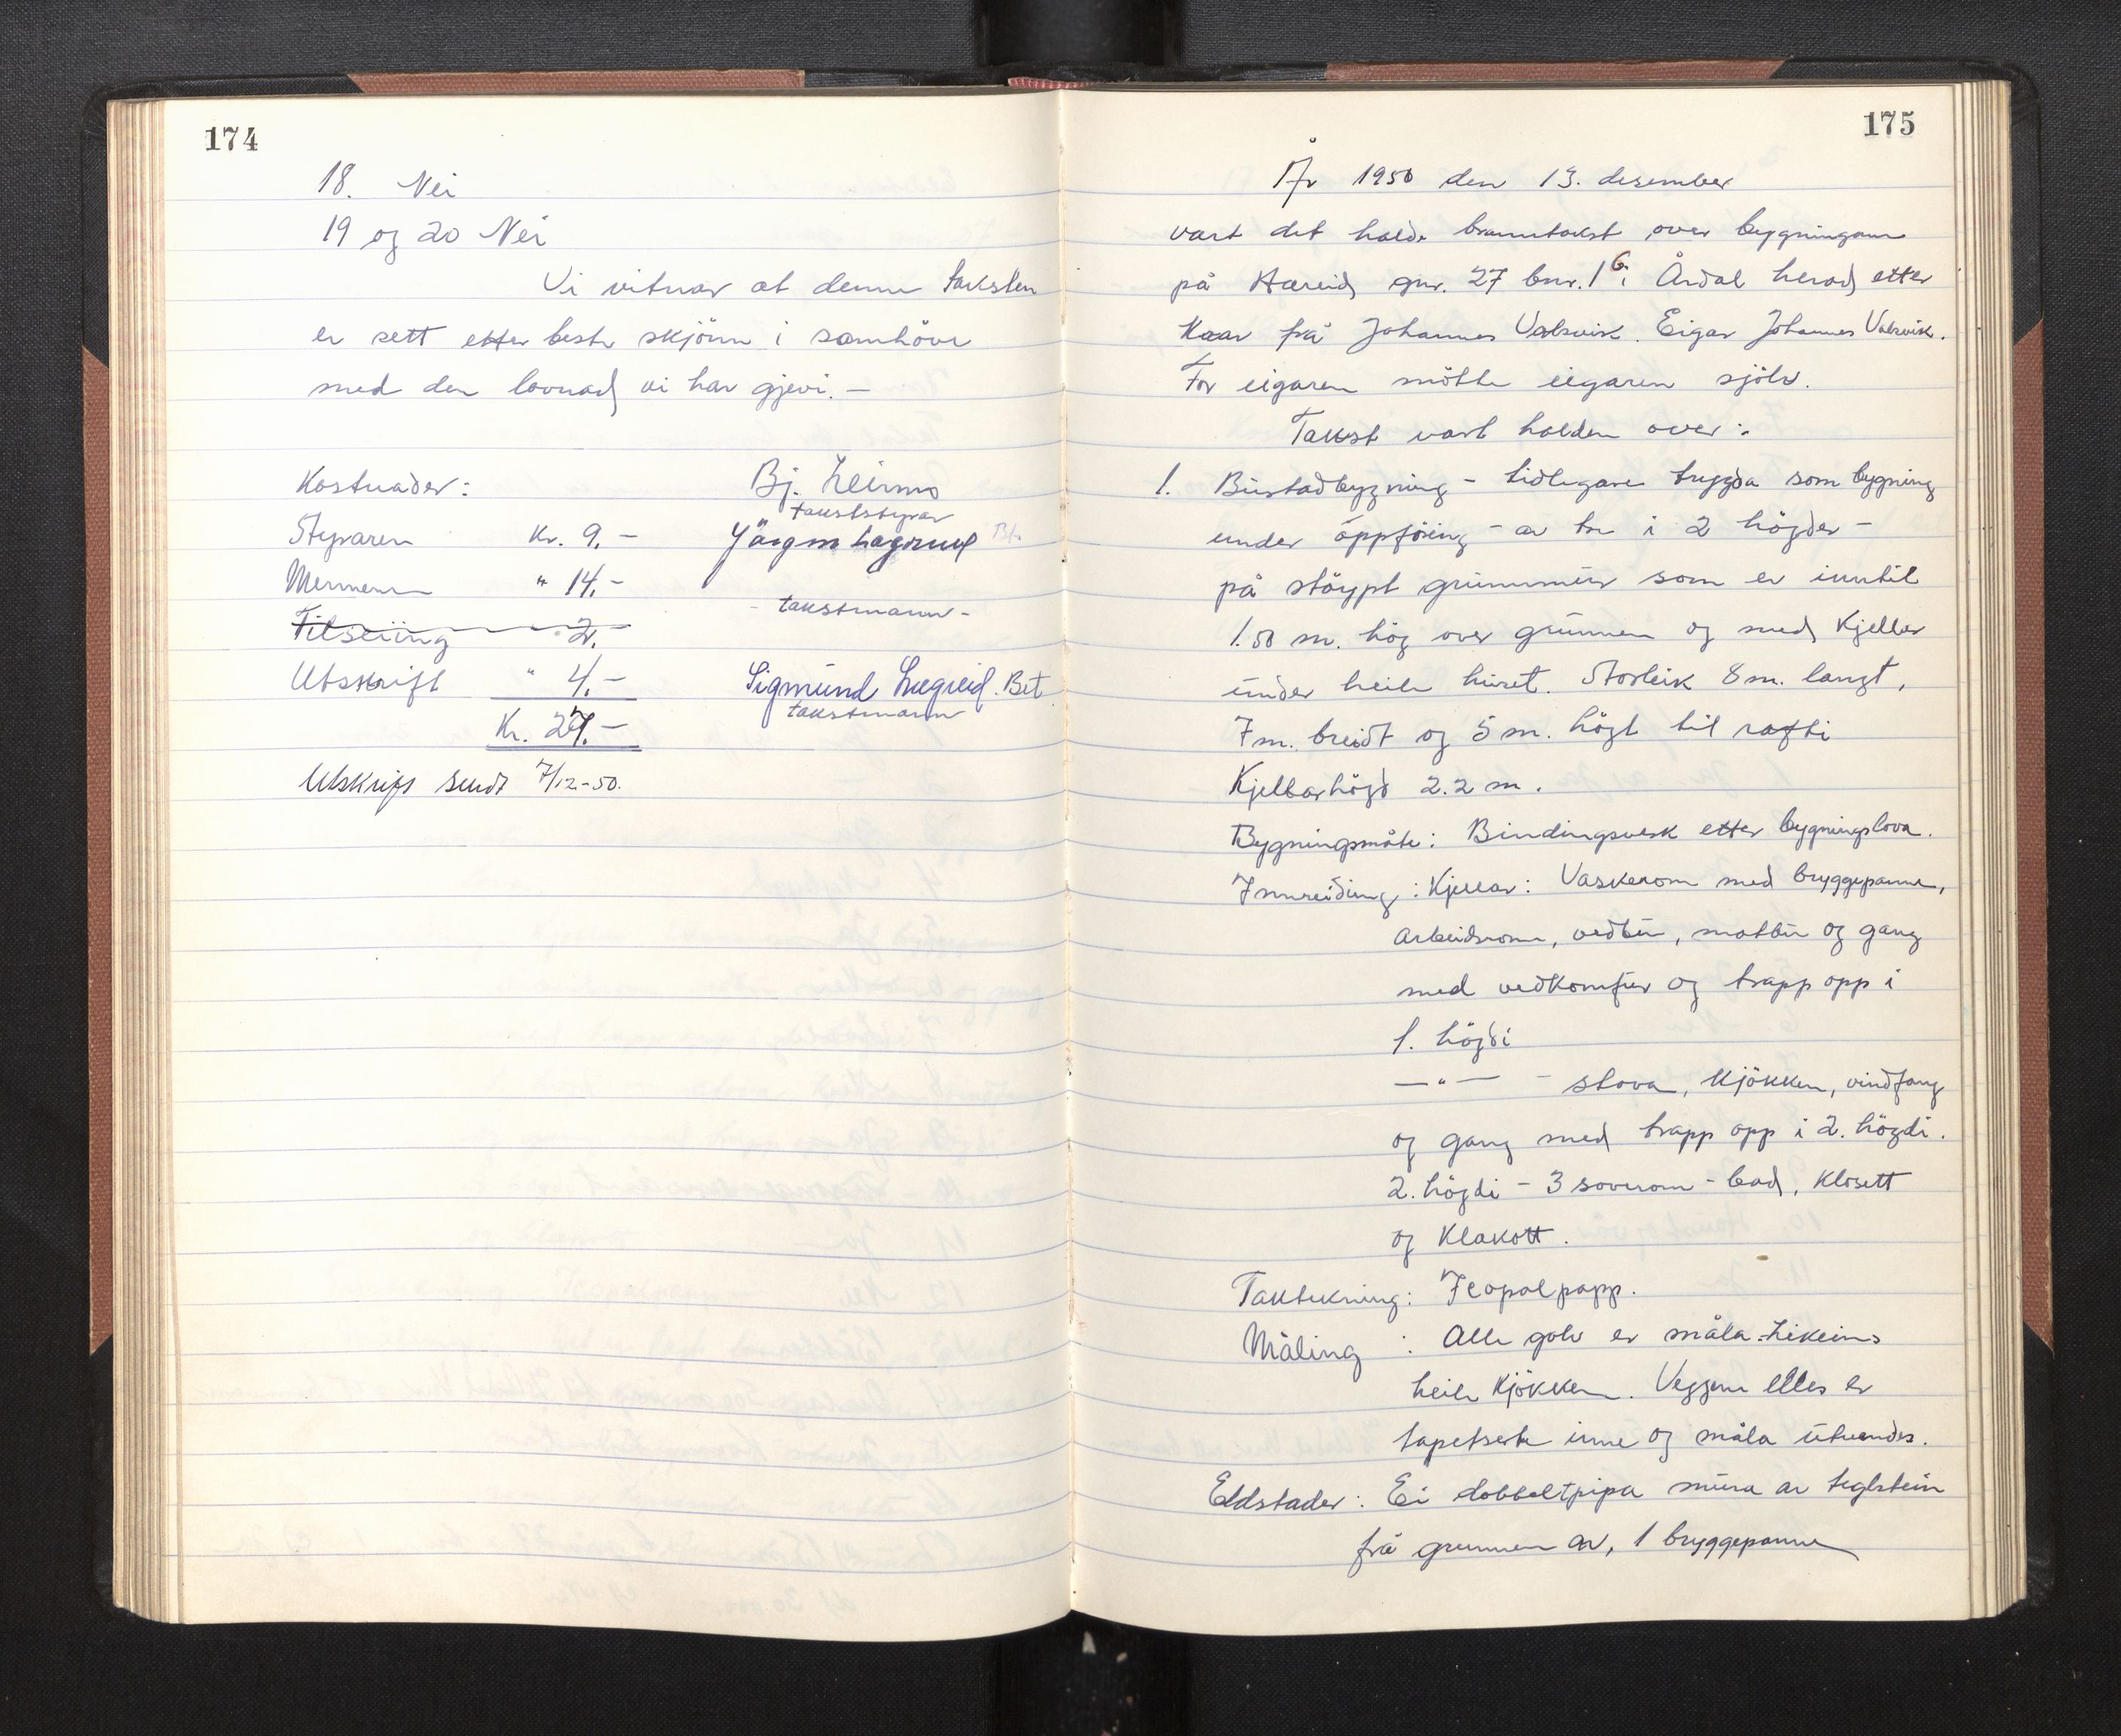 174
18. Nei
19 og 20 Nei
Vi vitnar at denne taksten
er sett etter beste skjönn i samhöve
med den lovnad vi har gjevi. —
Kostnader:
Bj. Leirmo
takststyrar
Styraren Kr. 9.—
Mennene " 14.—
takstmann
Tilseiing 2.—
Utskrift " 4.—
Sigmund Lægreid. Bet
takstmann
Kr. 27.—
Utskrift sendt 7/12-50.
175
År 1950 den 13. desember
vart det halde branntakst over bygningane
på Hæreid gnr. 27 bnr. 16 i Årdal herad etter
Krav frå Johannes Valsvik. Eigar Johannes Valsvik.
For eigaren mötte eigaren sjölv.
Takst vart halden over:
1. Bustadbygning - tidlegare trygda som bygning
under oppföring - av tre i 2 högder -
på stöypt grunnmur som er inntil
1.50 m. hög over grunnen og med Kjellar
under heile huset. Storleik 8 m. langt,
7 m. breidt og 5 m. högt til rafti
Kjellarhögd 2.2 m.
Bygningsmåte: Bindingsverk etter bygningslova.
Innreiding: Kjellar: Vaskerom med bryggepanne,
arbeidsrom, vedbu, matbu og gang
med vedkomfur og trapp opp i
1. högdi
—"— - stova, Kjökken, vindfang
og gang med trapp opp i 2. högdi.
2. högdi - 3 soverom - bad, Klosett
og Klakott.
Taktekning: Icopalpapp.
Måling: Alle golv er måla. Likeins
heile Kjökken. Veggene elles er
tapetserte inne og måla utvendes.
Eldstader: Ei dobbeltpipa mura av teglstein
frå grunnen av, 1 bryggepanne